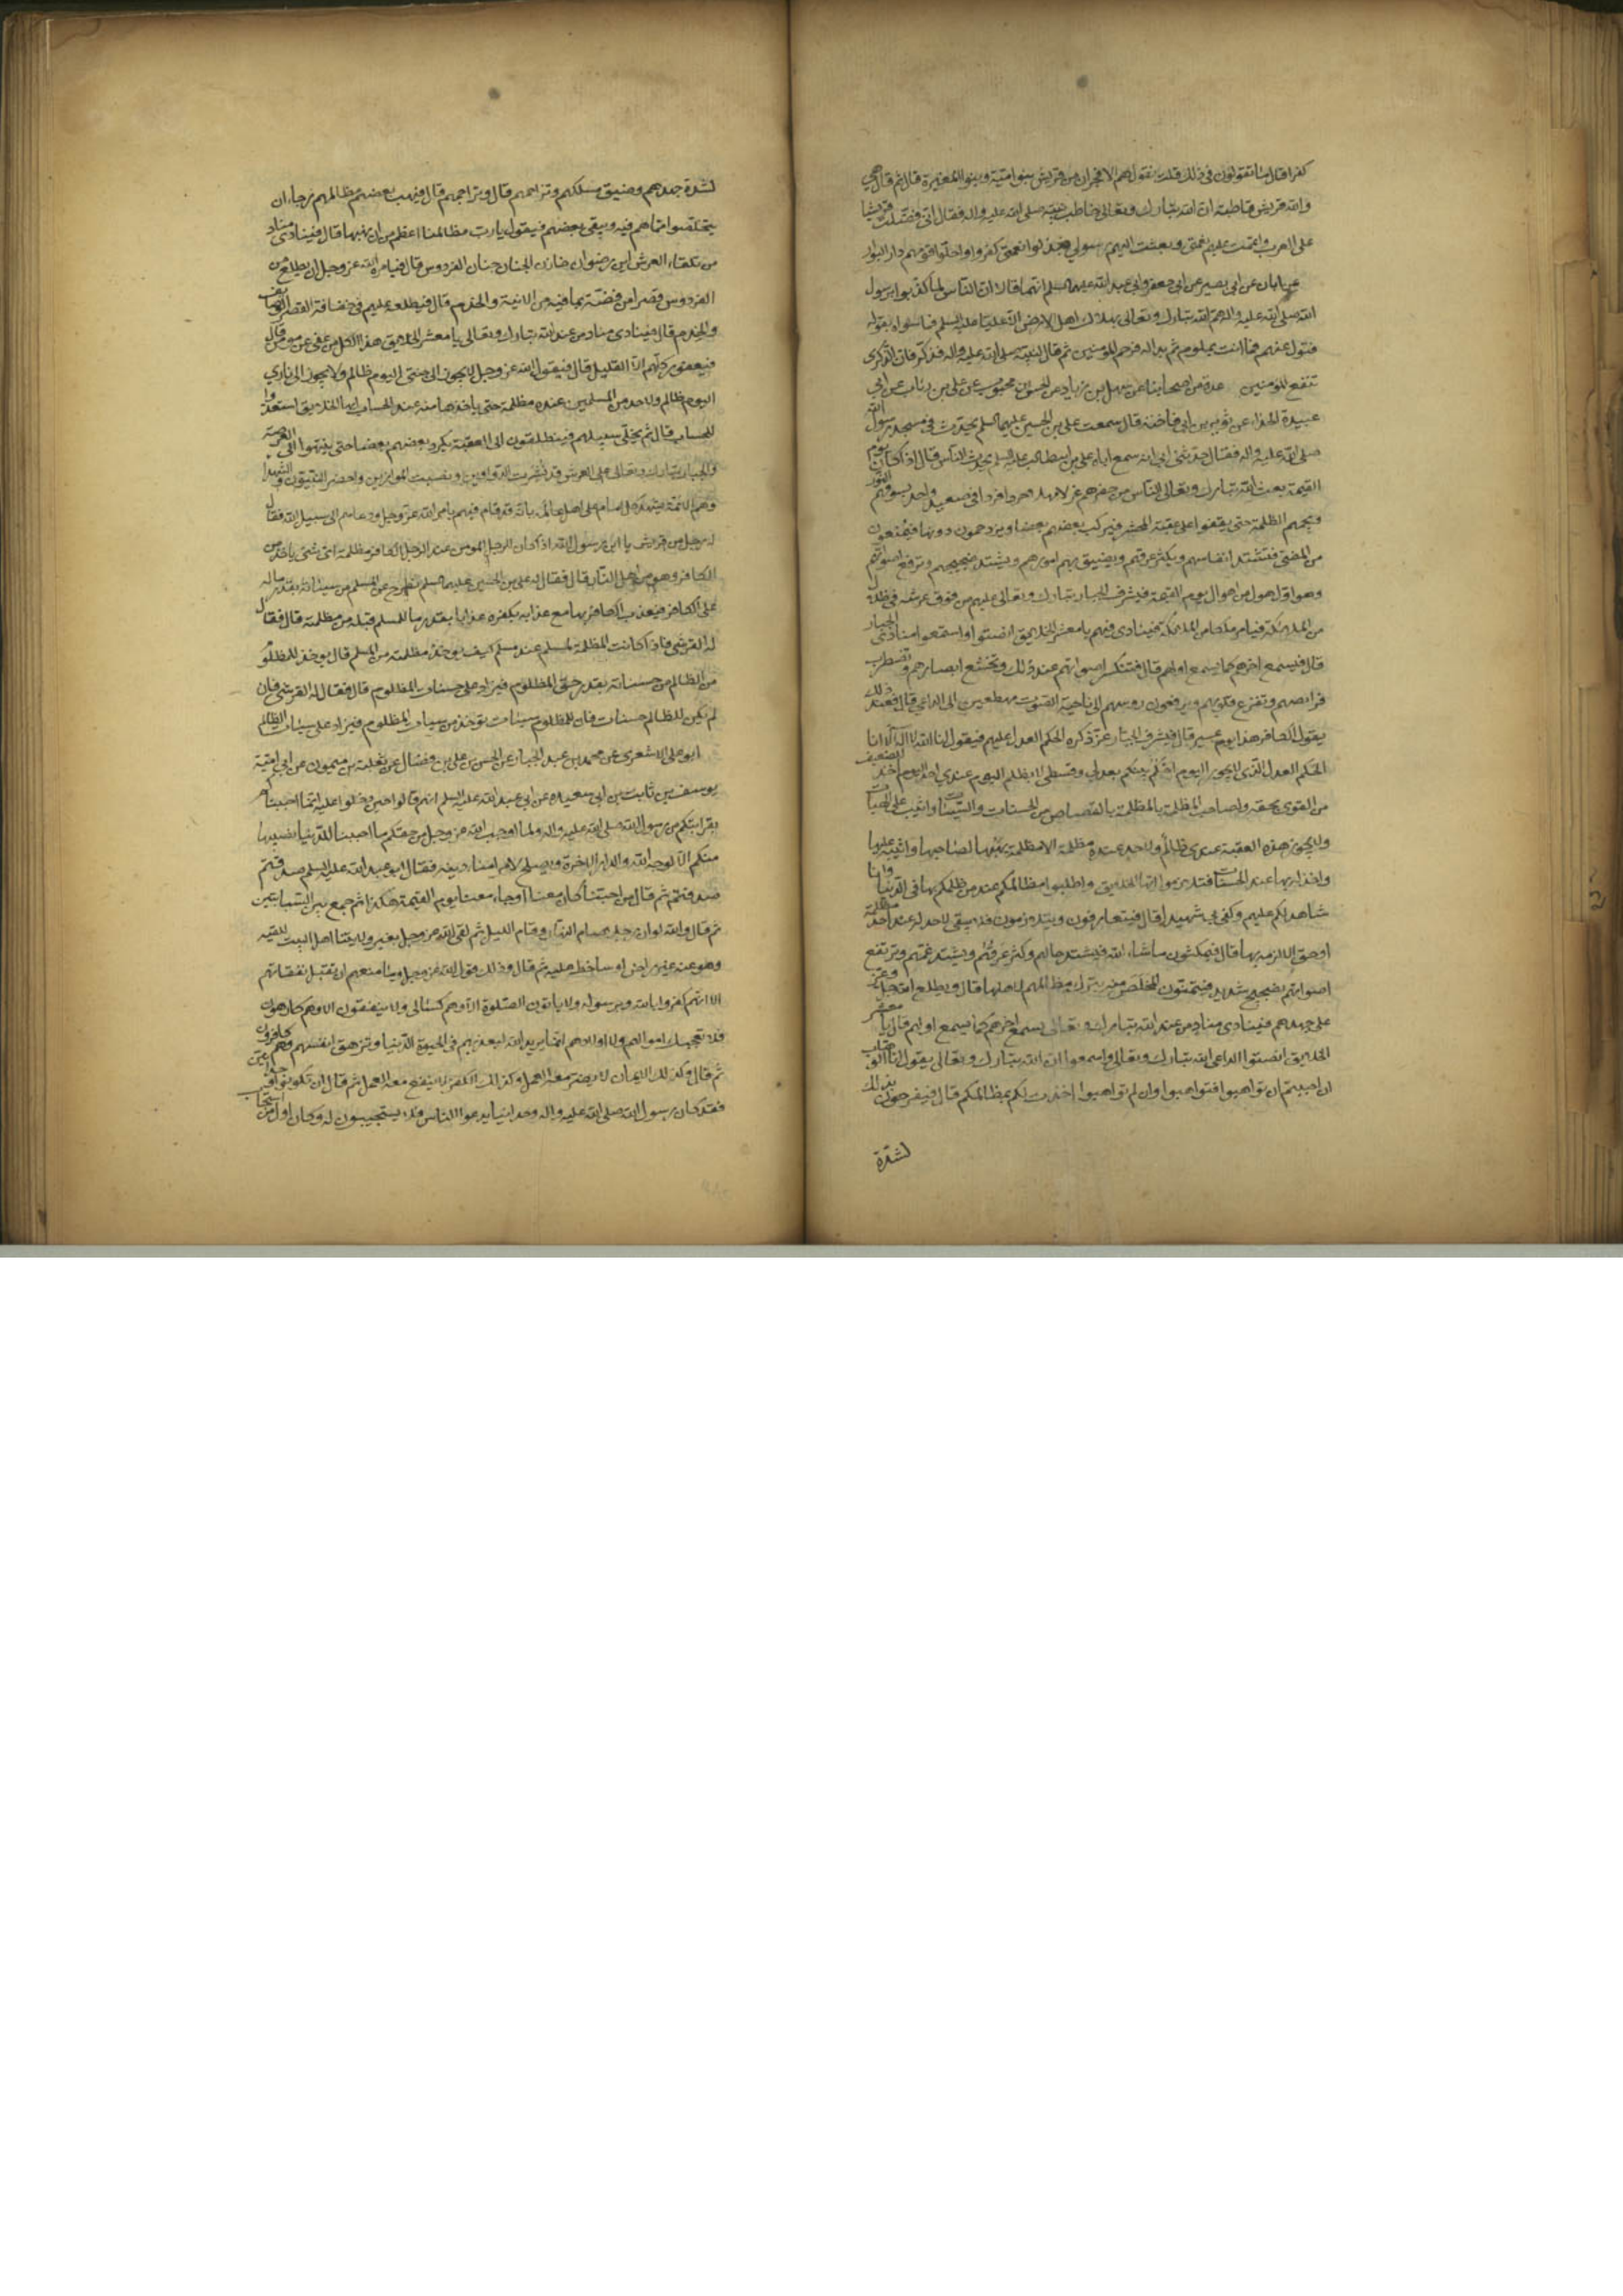 كفرا قال ما تقولون في ذلك قلت نقول هم الافجران من قريش بنو امية وبنو المغيرة قال ثم قال هي
والله قريش قاطبة ان الله تبارك وتعالى خاطب نبيه صلى الله عليه واله فقال اني فضلت قريشا
على العرب واتممت عليهم نعمتي وبعثت اليهم رسولي فبدلوا نعمتي كفروا واحلوا قومهم دار البوار
عن ابان عن ابي بصير عن ابي جعفر وابي عبد الله عليهما السلم انهما قالا ان الناس لما كذبوا برسول
الله صلى الله عليه واله هم الله تبارك وتعالى بهلاك اهل الارض الا عليا عليه السلم فما سواه بقوله
فتول عنهم فما انت بملوم ثم بدا له فرحم المؤمنين ثم قال لنبيه صلى الله عليه واله فذكر فان الذكرى
تنفع المؤمنين عدة من اصحابنا عن سهل بن زياد عن الحسن بن محبوب عن علي بن رئاب عن ابي
عبيدة الحذاء عن ثوير بن ابي فاخته قال سمعت علي بن الحسين عليهما السلم يحدث في مسجد رسول الله
صلى الله عليه واله فقال حدثني ابي انه سمع اباه علي بن ابيطالب عليه السلم يحدث الناس قال اذا كان يوم
القيمة بعث الله تبارك وتعالى الناس من حفرهم غرلا بهما جردا مردا في صعيد واحد يسوقهم النور
وتجمعهم الظلمة حتى يقفوا على عقبة المحشر فيركب بعضهم بعضا ويزدحمون دونها فيمنعون
من المضي فتشتد انفاسهم ويكثر عرقهم وتضيق بهم امورهم ويشتد ضجيجهم وترفع اصواتهم
وهو اول هول من اهوال يوم القيمة فيشرف الجبار تبارك وتعالى عليهم من فوق عرشه في ظلال
من الملائكة فيامر ملكا من الملائكة فينادي فيهم يا معشر الخلايق انصتوا واستمعوا منادي الجبار
قال فيسمع اخرهم كما يسمع اولهم قال فتنكسر اصواتهم عند ذلك وتخشع ابصارهم وتضطرب
فرائصهم وتفزع قلوبهم ويرفعون رؤسهم الى ناحية الصوت مهطعين الى الداعي قال فعند ذلك
يقول الكافر هذا يوم عسير قال فيشرف الجبار عز ذكره الحكم العدل عليهم فيقول انا الله لا اله الا انا
الحكم العدل الذي لا يجور اليوم احكم بينكم بعدلي وقسطي لا يظلم اليوم عندي احد اليوم اخذ للضعيف
من القوي بحقه ولصاحب المظلمة بالمظلمة بالقصاص من الحسنات والسيئات واثيب على الهبات
ولا يجوز هذه العقبة عندي ظالم ولاحد عنده مظلمة الا مظلمة يهبها لصاحبها واثيبه عليها
واخذ له بها عند الحساب فتلازموا ايها الخلايق واطلبوا مظالمكم عند من ظلمكم بها في الدنيا وانا
شاهد لكم عليهم وكفى بي شهيدا قال فيتعارفون ويتلازمون فلا يبقى لاحد له عند احد مظلمة
او حق الا لزمه بها قال فيمكثون ما شاء الله فيشتد حالهم وكثر عرقهم ويشتد غمهم وترتفع
اصواتهم بضجيج شديد فيتمنون المخلص منه بترك مظالمهم لاهلها قال ويطلع الله عز وجل
على جهدهم فينادي مناد من عند الله تبارك وتعالى يسمع اخرهم كما يسمع اولهم قال يا معشر
الخلايق انصتوا لداعي الله تبارك وتعالى واسمعوا ان الله تبارك وتعالى يقول انا الوهاب
ان احببتم ان تواهبوا فتواهبوا وان لم تواهبوا اخذت لكم بمظالمكم قال فيفرحون بذلك
لشدة
لشدة جهدهم وضيق مسلكهم وتزاحمهم قال وتزاحمهم قال فيهب بعضهم مظالمهم رجاء ان
يتخلصوا مما هم فيه ويبقى بعضهم فيقول يا رب مظالمنا اعظم من ان نهبها قال فينادي مناد
من تلقاء العرش اين رضوان خازن الجنان جنان الفردوس قال فيامره الله عز وجل ان يطلع من
الفردوس قصرا من فضة بما فيه من الانية والخدم قال فيطلعه عليهم في حفافة القصر الوصايف
والخدم قال فينادي مناد من عند الله تبارك وتعالى يا معشر الخلايق هذا لكل من عفى عن مؤمن قال
فيعفون كلهم الا القليل قال فيقول الله عز وجل لا يجوز الى جنتي اليوم ظالم ولا يجوز الى ناري
اليوم ظالم ولاحد من المسلمين عنده مظلمة حتى ياخذها منه عند الحساب ايها الخلايق استعدوا
للحساب قال ثم يخلى سبيلهم فينطلقون الى العقبة يكرد بعضهم بعضا حتى ينتهوا الى العرصة
والجبار تبارك وتعالى على العرش قد نشرت الدواوين ونصبت الموازين واحضر النبيون والشهدا
وهم الائمة يشهد كل امام على اهل عالمه بانه قد قام فيهم بامر الله عز وجل ودعاهم الى سبيل الله فقال
له رجل من قريش يا ابن رسول الله اذا كان الرجل المومن عند الرجل الكافر مظلمة اي شيء ياخذ من
الكافر وهو من اهل النار قال فقال له علي بن الحسين عليهما السلم يطرح عن المسلم من سيئاته بقدر ماله
على الكافر فيعذب الكافر بها مع عذابه بكفره عذابا بقدر ما للمسلم قبله من مظلمته قال فقال
له القرشي فاذا كانت المظلمة لمسلم عند مسلم كيف يوخذ مظلمته من المسلم قال يوخذ للمظلوم
من الظالم من حسناته بقدر حق المظلوم فيزاد على حسنات المظلوم قال فقال له القرشي فان
لم يكن للظالم حسنات فان للمظلوم سيئات يوخذ من سيئات المظلوم فيزاد على سيئات الظالم
ابو علي الاشعري عن محمد بن عبد الجبار عن الحسن بن علي بن فضال عن ثعلبة بن ميمون عن ابي امية
يوسف بن ثابت بن ابي سعيدة عن ابي عبد الله عليه السلم انهم قالوا حين دخلوا عليه انما احببناكم
بقرابتكم من رسول الله صلى الله عليه واله ولما اوجب الله عز وجل من حقكم ما احببنا للدنيا نصيبها
منكم الا لوجه الله والدار الاخرة وليصلح لامرء منا دينه فقال ابو عبد الله عليه السلم صدقتم
صدقتم ثم قال من احبنا كان معنا او جاء معنا يوم القيمة هكذا ثم جمع بين السبابتين
ثم قال والله لو ان رجلا صام النهار وقام الليل ثم لقي الله عز وجل بغير ولايتنا اهل البيت للقيه
وهو عنه غير راض او ساخط عليه ثم قال وذلك قول الله عز وجل وما منعهم ان تقبل نفقاتهم
الا انهم كفروا بالله وبرسوله ولا ياتون الصلوة الا وهم كسالى ولا ينفقون الا وهم كارهون
فلا تعجبك اموالهم ولا اولادهم انما يريد الله ليعذبهم في الحيوة الدنيا وتزهق انفسهم وهم كافرون
ثم قال وكذلك الايمان لا يضر معه العمل وكذلك الكفر لا ينفع معه العمل ثم قال ان تكونوا
فقد كان رسول الله صلى الله عليه واله وحدانيا يدعوا الناس فلا يستجيبون له وكان اول من استجاب